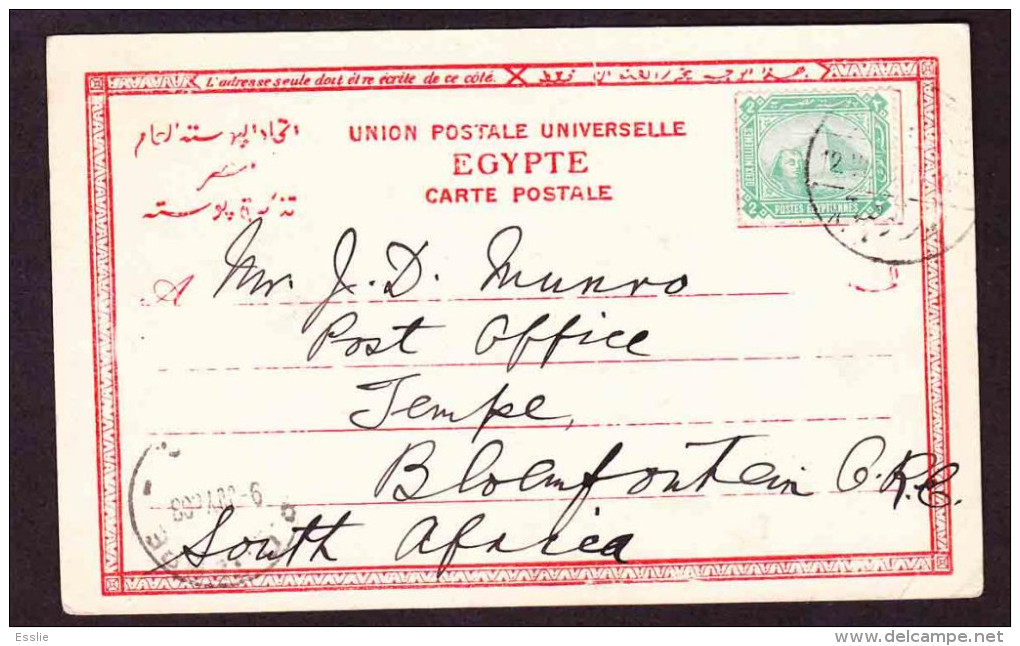 L'adresse seule doit être écrite de ce côté.
اتحاد البوسته العام
مصر
تذكرة بوسته
UNION POSTALE UNIVERSELLE
EGYPTE
CARTE POSTALE
2
DEUX MILLIEMES
POSTES EGYPTIENNES
2
12
A Mr. J. D. Munro
Post Office
Tempe,
Bloemfontein O.R.C.
South Africa
Esslie
www.delcampe.net